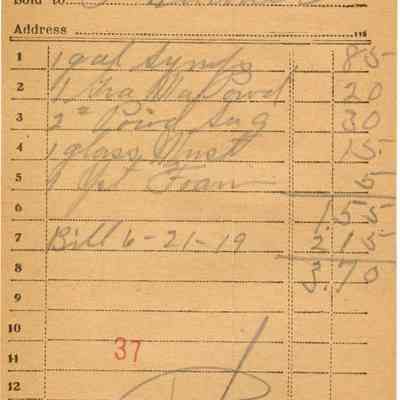 Sold to
Address 191
1 1 gal Syrup 85
2 1 Gra Wa Powd 20
3 2 # Powd Sug 30
4 1 glass Must 15
5 1 5
6 1.55
7 Bill 6-21-19 2 15
8 3.70
9
10
11 37
12